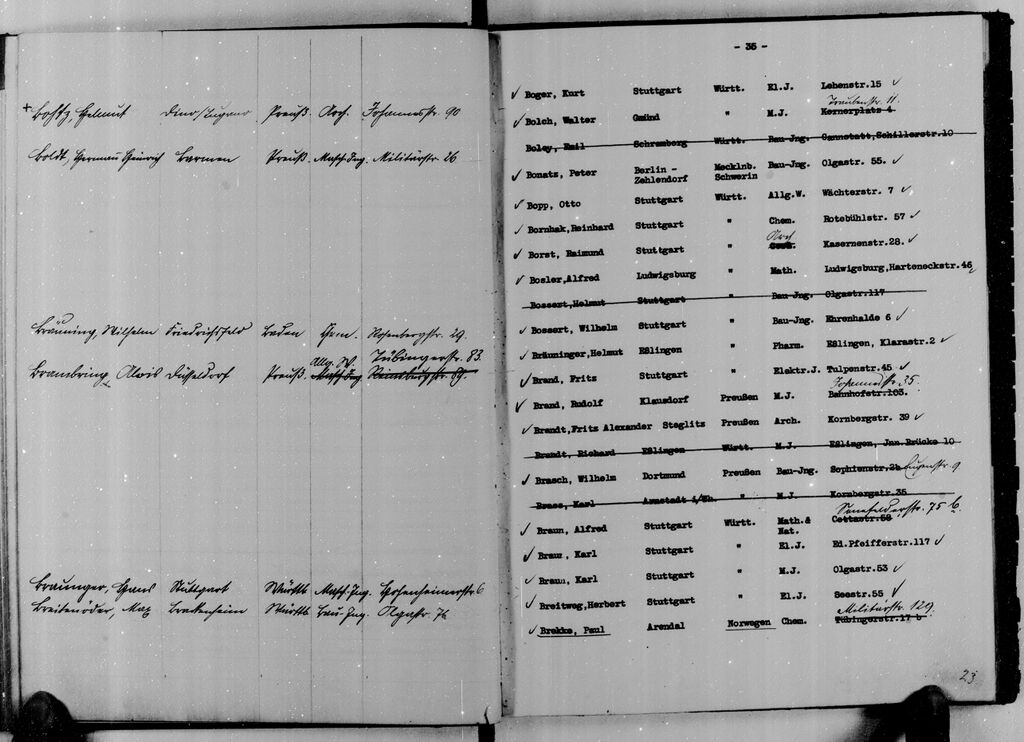 + Bohtz, Helmut Preuß. Arch. Johannesstr. 90
Boldt, Hermann Heinrich Barmen Preuß. Masch.Ing. Militärstr. 26
Bräuning, Wilhelm Friedrichsfeld Baden Chem. Rosenbergstr. 29.
Allg. W. Tübingerstr. 83
Brambring, Alois Düsseldorf Preuß. Masch.Ing. Reinsburgstr. 89.
Braunger, Hans Stuttgart Württb. Masch.Ing. Hohenheimerstr 6
Breitenöder, Max Brackenheim Württb. Bau-Ing. Olgastr. 76
- 35 -
✓ Boger, Kurt Stuttgart Württ. El.J. Lehenstr.15 ✓
Traubenstr. 11.
✓ Bolch, Walter Gmünd " M.J. Kernerplatz 4
Boley, Emil Schramberg Württ. Bau-Jng. Cannstatt,Schillerstr.10
✓ Bonatz, Peter Berlin - Zehlendorf Mecklnb. Schwerin Bau-Jng. Olgastr. 55. ✓
✓ Bopp, Otto Stuttgart Württ. Allg.W. Wächterstr. 7 ✓
✓ Bornhak,Reinhard Stuttgart " Chem. Rotebühlstr. 57 ✓
✓ Borst, Raimund Stuttgart " Arch Kasernenstr.28. ✓
✓ Bosler,Alfred Ludwigsburg " Math. Ludwigsburg,Harteneckstr.46
Bossert,Helmut Stuttgart " Bau-Jng. Olgastr.117
✓ Bossert, Wilhelm Stuttgart " Bau-Jng. Ehrenhalde 6 ✓
✓ Bräuninger,Helmut Eßlingen " Pharm. Eßlingen, Klarastr.2 ✓
✓ Brand, Fritz Stuttgart " Elektr.J. Tulpenstr.45 ✓
Johannesstr. 35.
✓ Brand, Rudolf Klausdorf Preußen M.J. Bahnhofstr.103.
✓ Brandt,Fritz Alexander Steglitz Preußen Arch. Kornbergstr. 39 ✓
Brandt, Richard Eßlingen Württ. M.J. Eßlingen, Jnn.Brücke 10
✓ Brasch, Wilhelm Dortmund Preußen Bau-Jng. Sophienstr.2b Eugenstr. 9
Brass, Karl Arnstadt i/Th. " M.J. Kornbergstr.35
Senefelderstr. 75 b.
✓ Braun, Alfred Stuttgart Württ. Math.& Nat. Cottastr.58
✓ Braun, Karl Stuttgart " El.J. Ed.Pfeifferstr.117 ✓
✓ Braun, Karl Stuttgart " M.J. Olgastr.53 ✓
✓ Breitweg,Herbert Stuttgart " El.J. Seestr.55 ✓
Militärstr. 129.
✓ Brekke, Paul Arendal Norwegen Chem. Tübingerstr.17 b
23